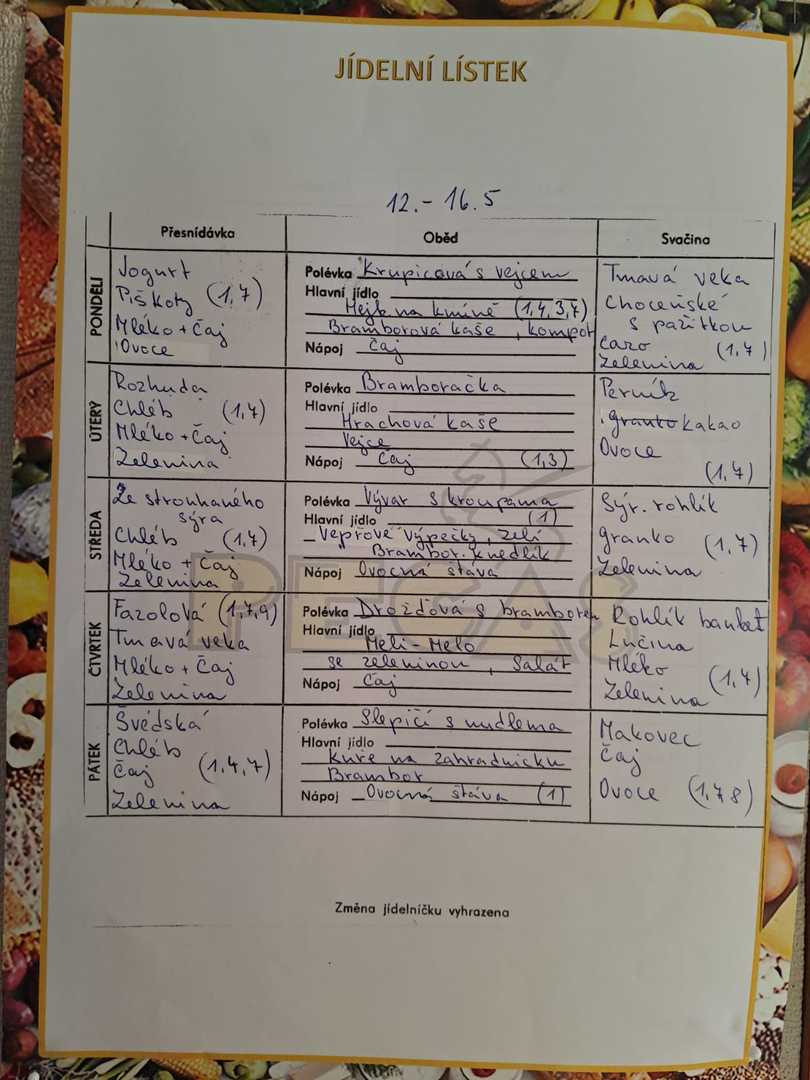 JÍDELNÍ LÍSTEK
12. - 16.5
Přesnídávka Oběd Svačina
PONDĚLÍ
Jogurt
Piškoty (1,7)
Mléko + Čaj
Ovoce
Polévka Krupicová s vejcem
Hlavní jídlo
Hejk na kmíně (1,4,3,7)
Bramborová kaše, kompot
Nápoj čaj
Tmavá veka
Choceňské
s pažitkou
caro (1,7)
Zelenina
ÚTERÝ
Rozhuda
Chléb (1,7)
Mléko + Čaj
Zelenina
Polévka Bramboračka
Hlavní jídlo
Hrachová kaše
Vejce
Nápoj čaj (1,3)
Perník
granko kakao
Ovoce
(1,7)
STŘEDA
Ze strouhaného
sýra
Chléb (1,7)
Mléko + Čaj
Zelenina
Polévka Vývar s kroupama
Hlavní jídlo (1)
Vepřové výpečky, zelí
Brambor. knedlík
Nápoj Ovocná šťáva
Sýr. rohlík
granko (1,7)
Zelenina
ČTVRTEK
Fazolová (1,7,9)
Tmavá veka
Mléko + Čaj
Zelenina
Polévka Drožďová s bramborem
Hlavní jídlo
Meli-Melo
se zeleninou, Salát
Nápoj Čaj
Rohlík banket
Lučina
Mléko
Zelenina (1,7)
PÁTEK
Švédská
Chléb
Čaj (1,4,7)
Zelenina
Polévka Slepičí s nudlema
Hlavní jídlo
Kuře na zahradnicku
Brambor
Nápoj Ovocná šťáva (1)
Makovec
Čaj
Ovoce (1,7,8)
PEGAS
Změna jídelníčku vyhrazena